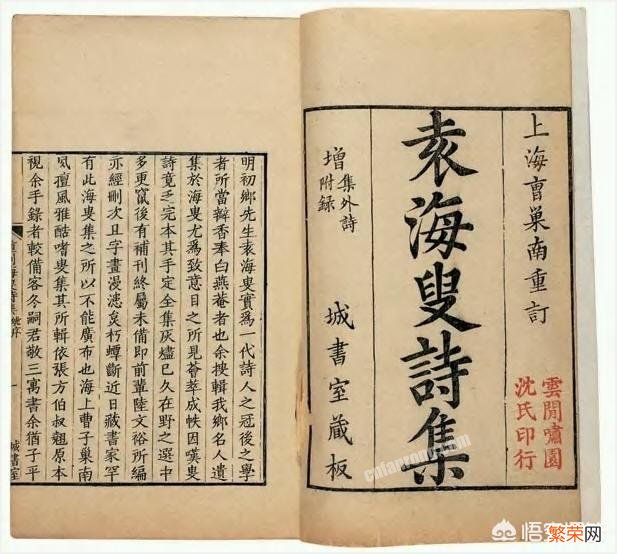 上海曺巢南重訂
袁海叟詩集
增集外詩
附錄
城書室藏板
雲閒嘯園
沈氏印行
明初鄉先生袁海叟實爲一代詩人之冠後之學
者所當瓣香奉白燕菴者也余搜輯我鄉名人遺
集於海叟尤爲致意目之所見薈萃成帙因嘆叟
詩竟乏完本其手定全集灰燼已久在野之選中
多更竄後有補刊終屬未備即前輩陸文裕所編
亦經刪次且字畫漫漶矣朽蟫斷近日藏書家罕
有此海叟集之所以不能廣布也海上曹子巢南
夙擅風雅酷嗜叟集其所輯依張方伯叔翹原本
視余手錄者較備客冬嗣君敬三寓書余猶子平
序
一
城書室
悟空
繁荣网